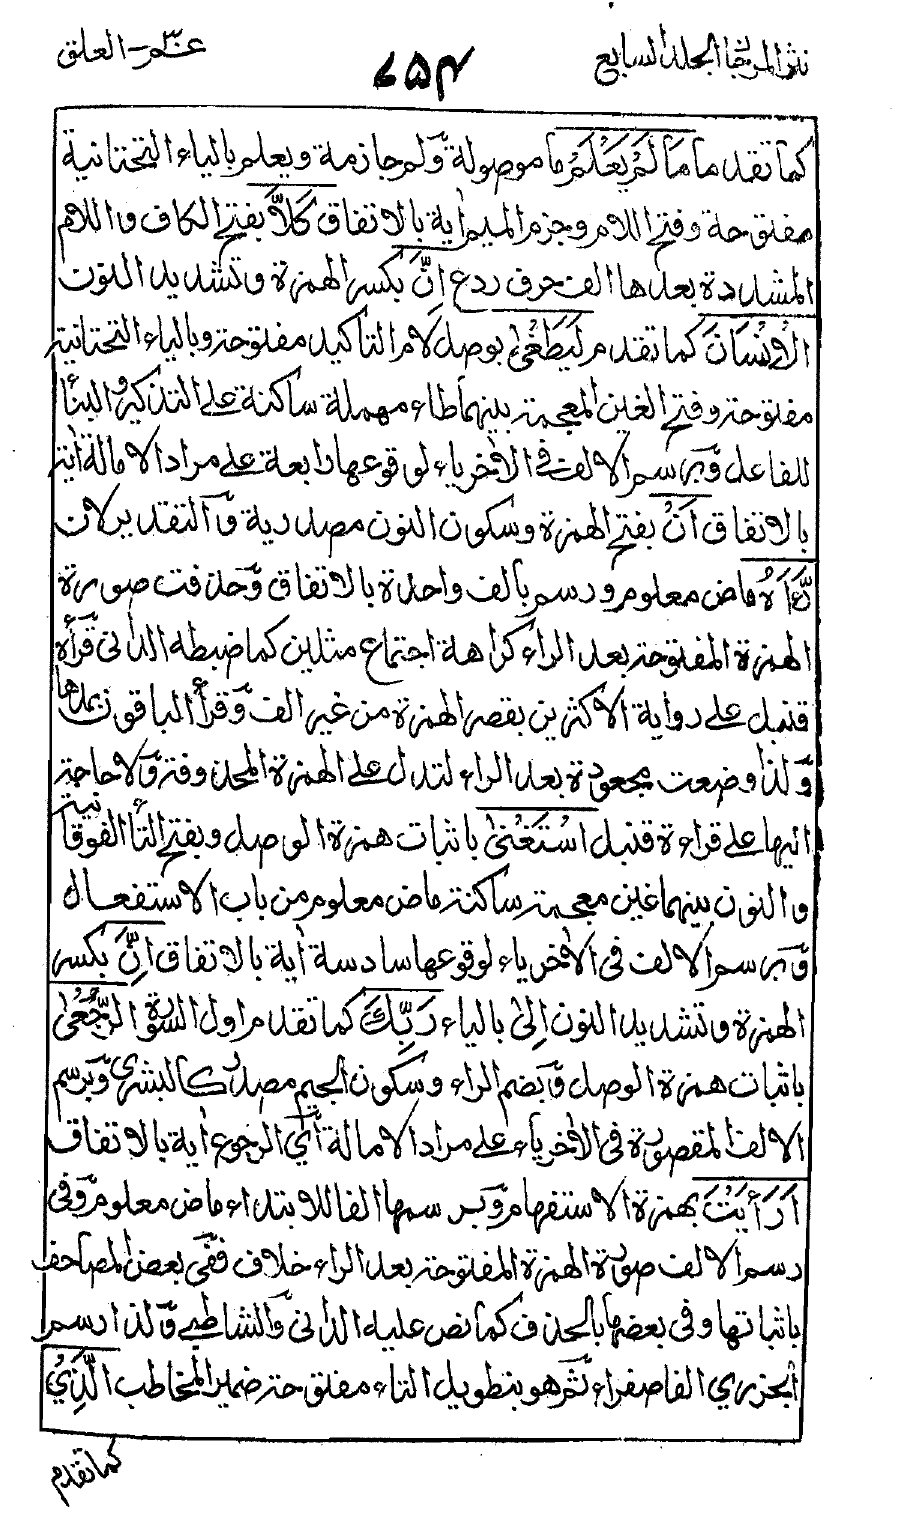 نثر المرجان المجلد السابع
٧٥٤
عم - العلق
كما تقدم ما مَا لَمْ يَعْلَمْ ما موصولة ولم جازمة ويعلم بالياء التحتانية
مفتوحة وفتح اللام وجزم الميم اٰية بالاتفاق كَلَّا بفتح الكاف واللام
المشددة بعدها الف حرف ردع اِنَّ بكسر الهمزة وتشديد النون
الْاِنْسَانَ كما تقدم لَيَطْغٰى بوصل لام التاكيد مفتوحة وبالياء التحتانية
مفتوحة وفتح الغين المعجمة بينهما طاء مهملة ساكنة على التذكير والبناء
للفاعل ويرسم الالف فى الاٰخر ياء لوقوعها رابعة على مراد الامالة اٰية
بالاتفاق اَنْ بفتح الهمزة وسكون النون مصدرية والتقدير لان
رَّءَاهُ ماض معلوم ورسم بالف واحدة بالاتفاق وحذفت صورة
الهمزة المفتوحة بعد الراء كراهة اجتماع مثلين كما ضبطه الدانى قرأه
قنبل على رواية الاكثرين بقصر الهمزة من غير الف وقرأ الباقون بمدها
ولذا وضعت مجعودة بعد الراء لتدل على الهمزة المحذوفة ولا حاجة
اليها على قراءة قنبل اسْتَغْنٰى باثبات همزة الوصل وبفتح التاء الفوقانية
والنون بينهما غين معجمة ساكنة ماض معلوم من باب الاستفعال
ويرسم الالف فى الاٰخر ياء لوقوعها سادسة اٰية بالاتفاق اِنَّ بكسر
الهمزة وتشديد النون اِلٰى بالياء رَبِّكَ كما تقدم اول السورة الرُّجْعٰى
باثبات همزة الوصل وبضم الراء وسكون الجيم مصدر كالبشرى ويرسم
الالف المقصورة فى الاٰخر ياء على مراد الامالة اى الرجوع اٰية بالاتفاق
اَرَاَيْتَ بهمزة الاستفهام ويرسمها الفا للابتداء ماض معلوم وفى
رسم الالف صورة الهمزة المفتوحة بعد الراء خلاف ففى بعض المصاحف
باثباتها وفى بعضها بالحذف كما نص عليه الدانى والشاطبى ولذا رسم
الجزرى الفا صفراء ثم هو بتطويل التاء مفتوحة ضمير المخاطب الَّذِىْ
كما تقدم